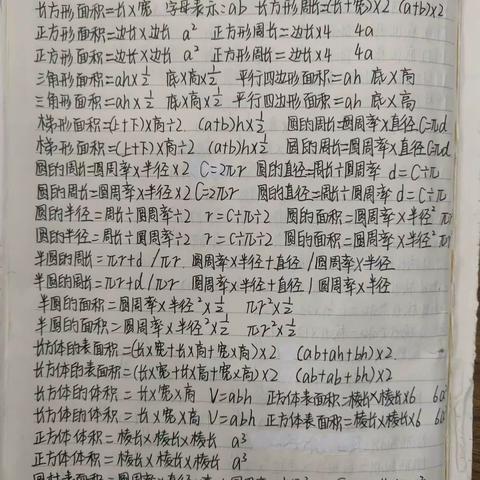 长方形面积=长×宽 字母表示:ab 长方形周长=(长+宽)×2 (a+b)×2
正方形面积=边长×边长 a² 正方形周长=边长×4 4a
正方形面积=边长×边长 a² 正方形周长=边长×4 4a
三角形面积=ah×½ 底×高×½ 平行四边形面积=ah 底×高
三角形面积=ah×½ 底×高×½ 平行四边形面积=ah 底×高
梯形面积=(上+下)×高÷2 (a+b)h×½ 圆的周长=圆周率×直径C=πd
梯形面积=(上+下)×高÷2 (a+b)h×½ 圆的周长=圆周率×直径C=πd
圆的周长=圆周率×半径×2 C=2πr 圆的直径=周长÷圆周率 d=C÷π
圆的周长=圆周率×半径×2 C=2πr 圆的直径=周长÷圆周率 d=C÷π
圆的半径=周长÷圆周率÷2 r=C÷π÷2 圆的面积=圆周率×半径² π
圆的半径=周长÷圆周率÷2 r=C÷π÷2 圆的面积=圆周率×半径² π
半圆的周长=πr+d/πr 圆周率×半径+直径/圆周率×半径
半圆的周长=πr+d/πr 圆周率×半径+直径/圆周率×半径
半圆的面积=圆周率×半径²×½ πr²×½
半圆的面积=圆周率×半径²×½ πr²×½
长方体的表面积=(长×宽+长×高+宽×高)×2 (ab+ah+bh)×2
长方体的表面积=(长×宽+长×高+宽×高)×2 (ab+ah+bh)×2
长方体的体积=长×宽×高 V=abh 正方体表面积=棱长×棱长×6 6a²
长方体的体积=长×宽×高 V=abh 正方体表面积=棱长×棱长×6 6a
正方体体积=棱长×棱长×棱长 a³
正方体体积=棱长×棱长×棱长 a³